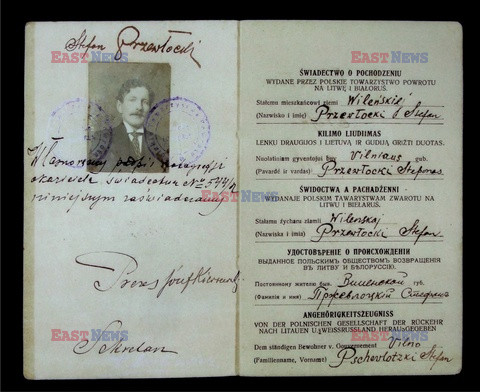 Stefan Przewłocki
EASTNEWS
Własnoręczny podpis
okaziciela świadectwa № 544/2
niniejszym zaświadczamy
EASTNEWS
Prezes Józef
EASTNEWS
Sekretarz
ŚWIADECTWO O POCHODZENIU
WYDANE PRZEZ POLSKIE TOWARZYSTWO POWROTU
NA LITWĘ I BIAŁORUŚ.
EASTNEWS
Stałemu mieszkańcowi ziemi Wileńskiej
(Nazwisko i imię) Przewłocki Stefan
KILIMO LIUDIIMAS
LENKU DRAUGIJOS Į LIETUVĄ IR GUDIJĄ GRĮŽTI DUOTAS.
Nuolatiniam gyventojui buv. Vilniaus gub.
(Pavardė ir vardas) Przewłocki Stefanas
EASTNEWS
ŚWIDOCTWA A PACHADŻENNI
WYDANAJE POLSKIM TAWARYSTWAM ZWAROTU NA
LITWU I BIEŁARUŚ.
Stałamu życharu ziamli Wilenskaj
(Nazwisko i imia) Przewłocki Stefan
УДОСТОВѢРЕНIЕ О ПРОИСХОЖДЕНIИ
ВЫДАННОЕ ПОЛЬСКИМЪ ОБЩЕСТВОМЪ ВОЗВРАЩЕНIЯ
ВЪ ЛИТВУ И БѢЛОРУССIЮ.
Постоянному жителю быв. Виленской губ.
(Фамилія и имя) Пржевлоцкiй Стефанъ
EASTNEWS
ANGEHÖRIGKEITSZEUGNISS
VON DER POLNISCHEN GESELLSCHAFT DER RÜCKKEHR
NACH LITAUEN U. WEISSRUSSLAND HERAUSGEGEBEN
Dem ständigen Bewohner v. Gouvernement Vilno
(Familienname, Vorname) Pschevlotzki Stefan